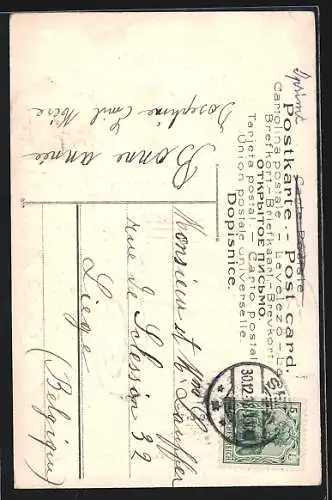 Imprimé
Carte Postale
Postkarte. - Post card.
Cartolina postale - Levelező-L
Brefkort - Briefkaart - Brevkort
ОТКРЫТОЕ ПИСЬМО.
Tarjeta postal - Carto postal
Union postale universelle
Dopisnice.
Bonne année
Joséphine Emil Mère
Monsieur et Mme C. Lauffer
rue de Sclessin 32
Liege
(Belgique)
30.12.
5